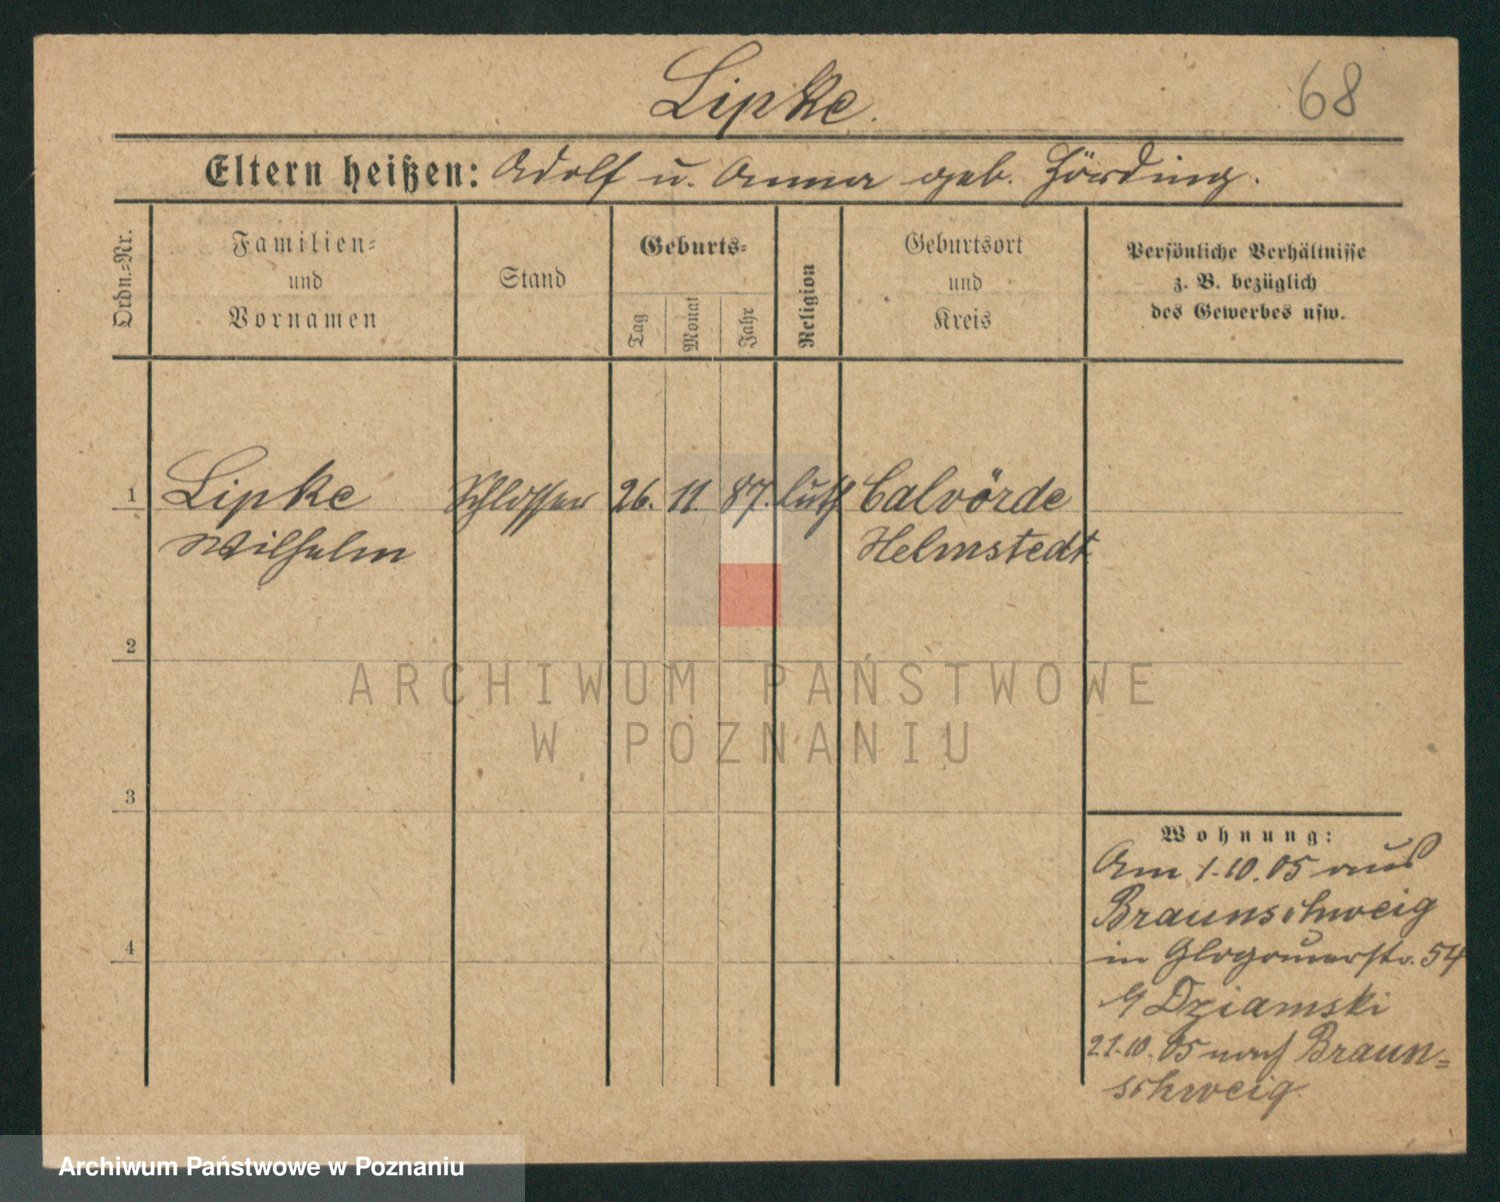 Lipke.
68
Eltern heißen: Adolf u. Anna geb. Hörding.
Ordn.=Nr.
Familien=
und
Vornamen
Stand
Geburts=
Tag
Monat
Jahr
Religion
Geburtsort
und
Kreis
Persönliche Verhältnisse
z. B. bezüglich
des Gewerbes usw.
1 Lipke Schlosser 26. 11. 87. luth Calvörde
Wilhelm Helmstedt
2
3
4
Wohnung:
Am 1.10.05 aus
Braunschweig
in Glogauerstr. 54
Dziamski
21.10.05 nach Braun=
schweig
ARCHIWUM PAŃSTWOWE
W POZNANIU
Archiwum Państwowe w Poznaniu